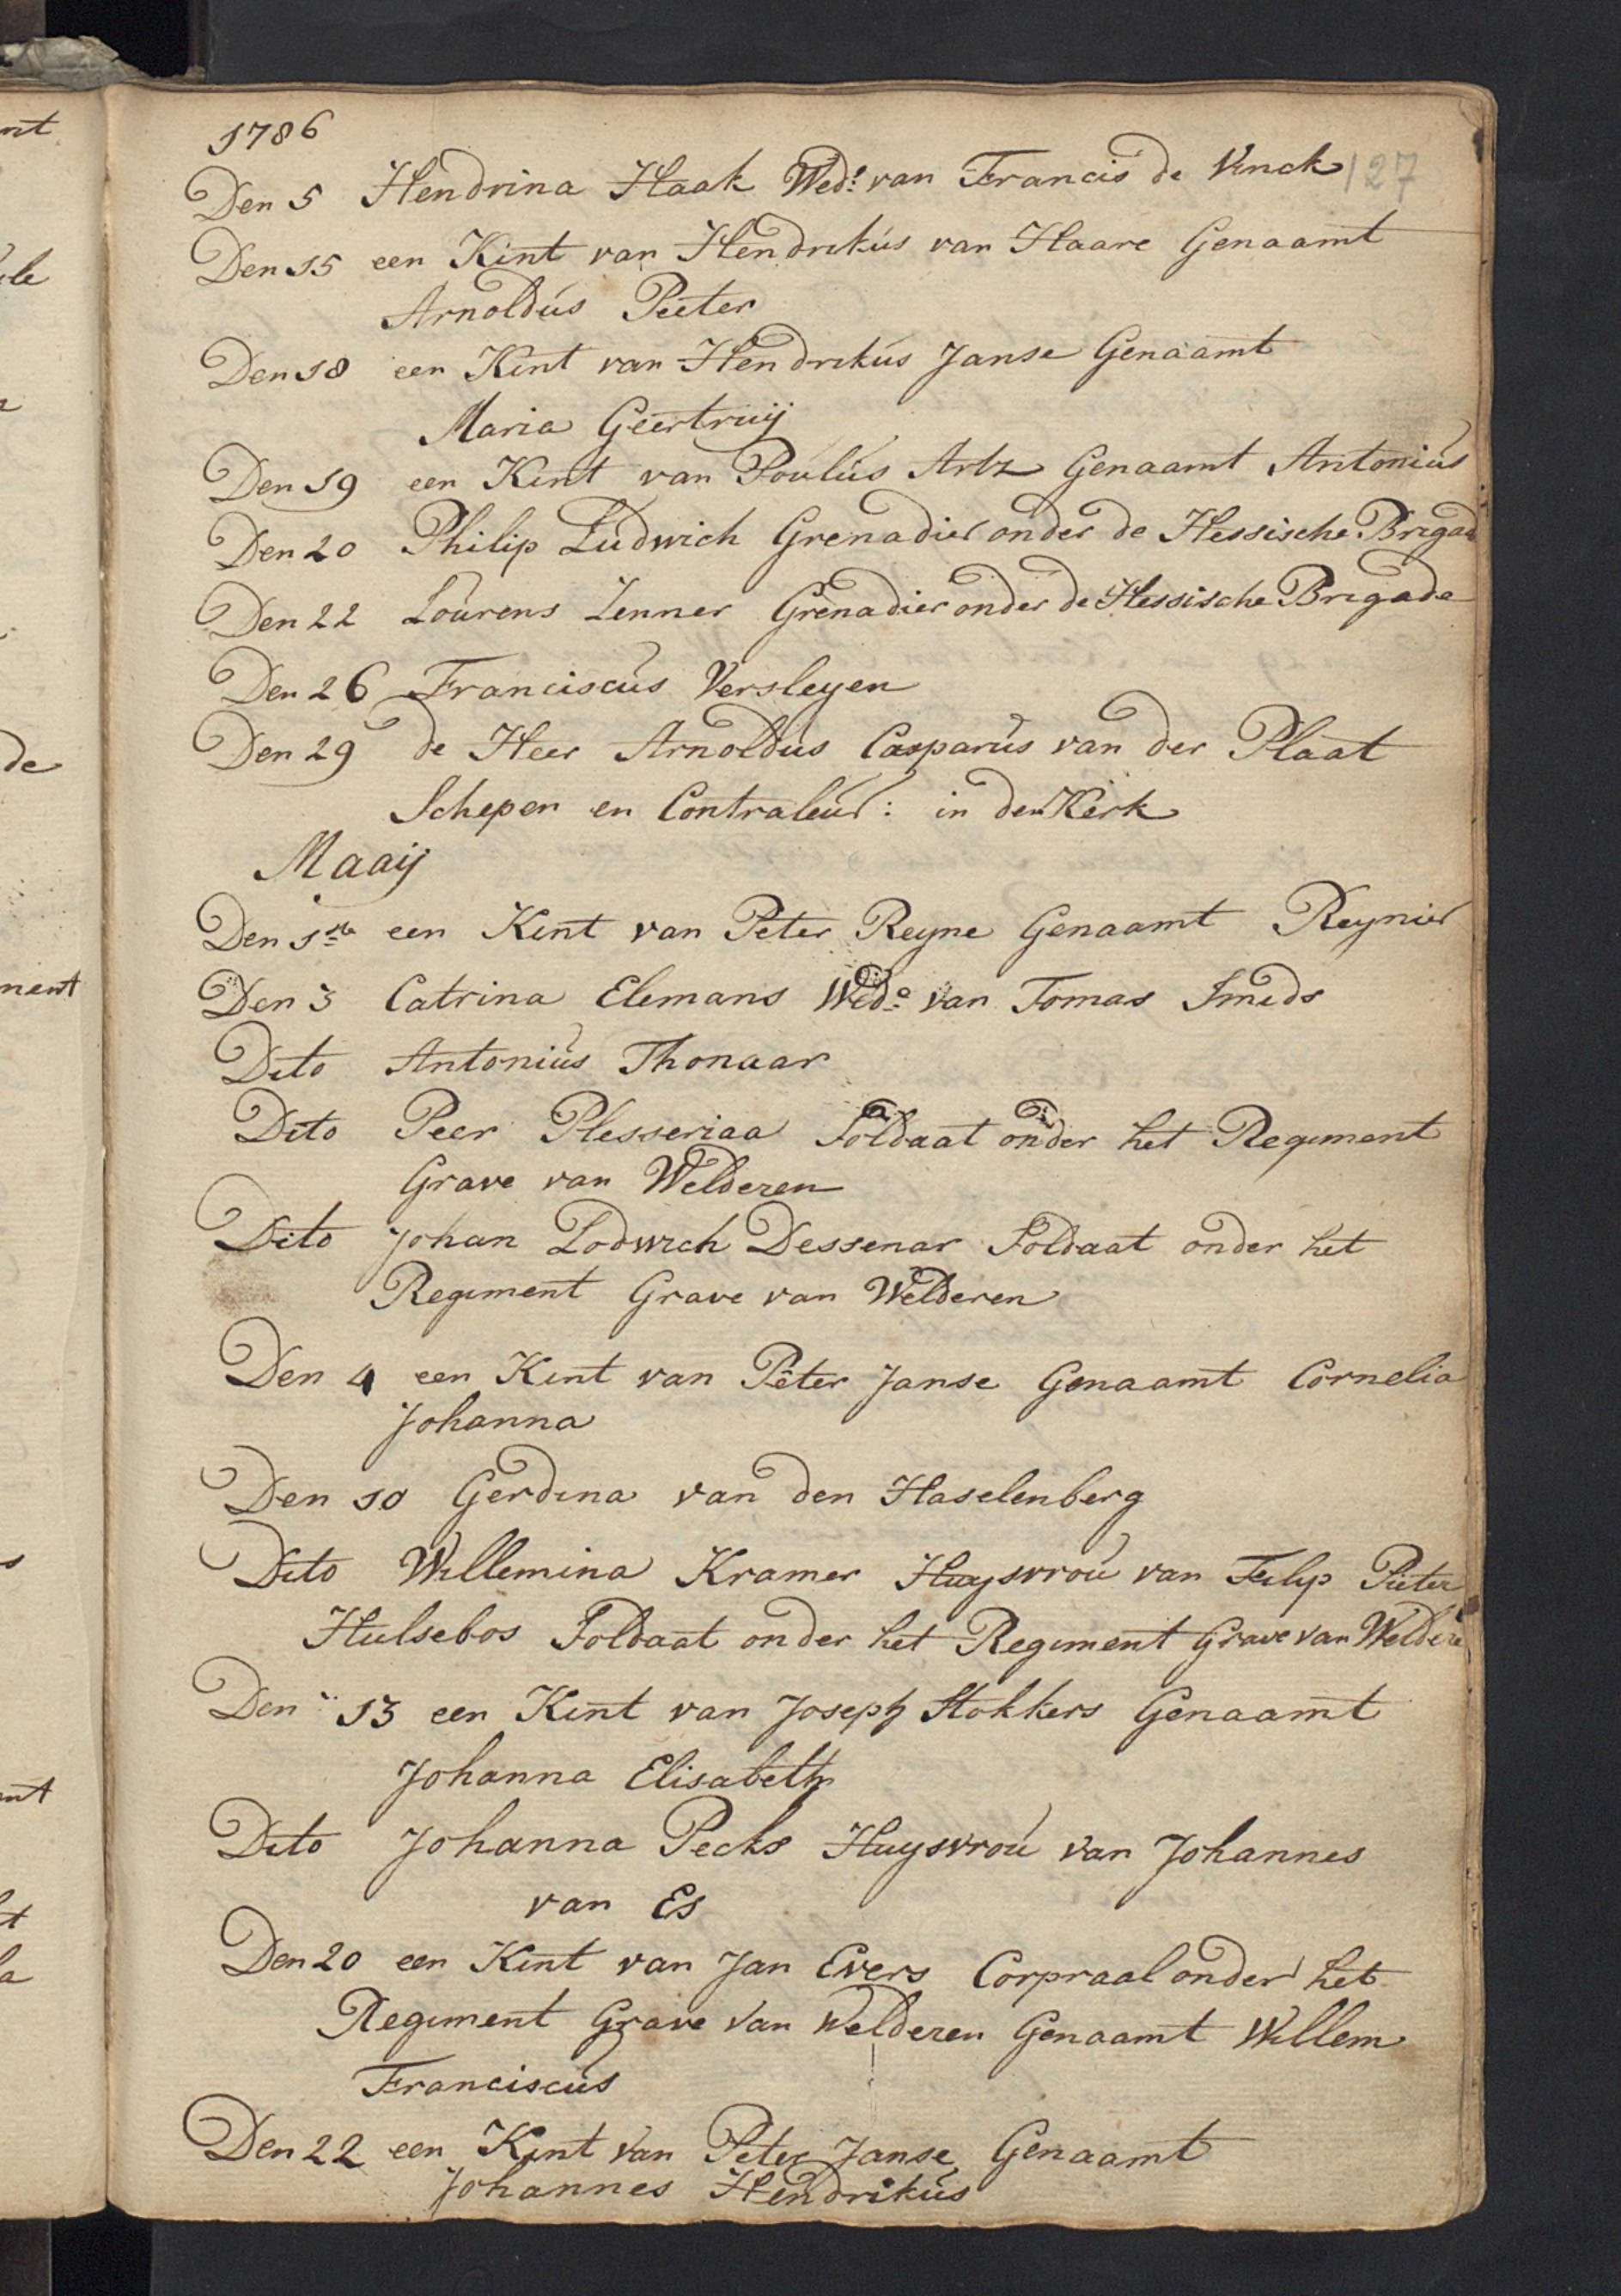 1786
127
Den 5 Hendrina Haak Wed:e van Francis de Vinck
Den 15 een Kint van Hendrikus van Haare Genaamt
Arnoldus Peeter
Den 18 een Kint van Hendrikus Janse Genaamt
Maria Geertruij
Den 19 een Kint van Poulus Artz Genaamt Antonius
Den 20 Philip Ludwich Grenadier onder de Hessische Brigad
Den 22 Lourens Zenner Grenadier onder de Hessische Brigade
Den 26 Franciscus Versleyen
Den 29 de Heer Arnoldus Casparus van der Plaat
Schepen en Contraleur: in den Kerk
Maaij
Den 1ste een Kint van Peter Reyne Genaamt Reynier
Den 3 Catrina Elemans Wede van Tomas Smids
Dito Antonius Thonaar
Dito Peer Plesseriaa Soldaat onder het Regiment
Grave van Welderen
Dito Johan Lodwich Dessenar Soldaat onder het
Regiment Grave van Welderen
Den 4 een Kint van Peter Janse Genaamt Cornelia
Johanna
Den 10 Gerdina van den Haselenberg
Dito Willemina Kramer Huysvrou van Filip Pieter
Hulsebos Soldaat onder het Regiment Grave van Weldere
Den 13 een Kint van Joseph Stokkers Genaamt
Johanna Elisabeth
Dito Johanna Pecks Huysvrou van Johannes
van Es
Den 20 een Kint van Jan Evers Corpraal onder het
Regiment Grave van Welderen Genaamt Willem
Franciscus
Den 22 een Kint van Peter Janse Genaamt
Johannes Hendrikus